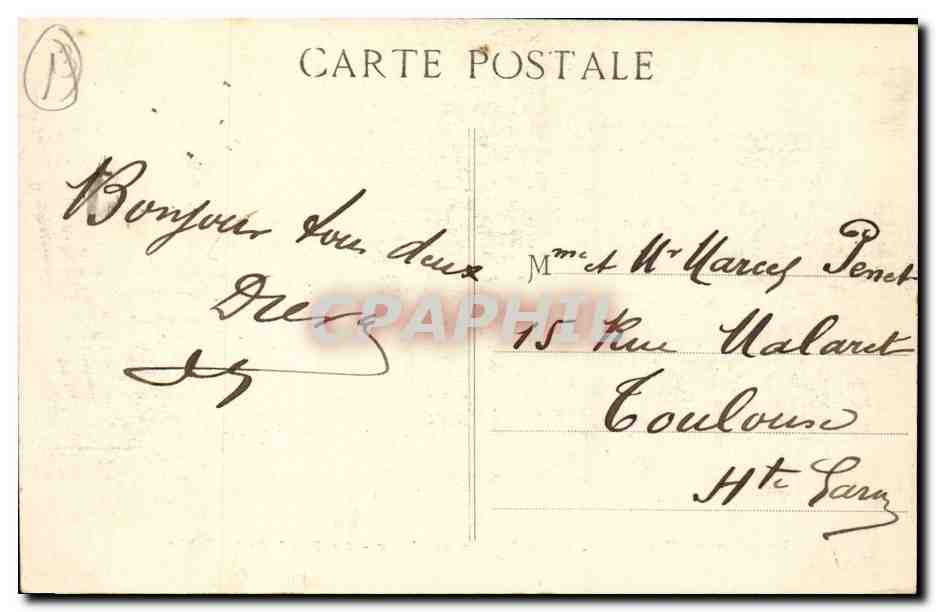 CARTE POSTALE
Bonjour tous deux
Mme et Mr Marcel Penet
15 Rue Malaret
Toulouse
Hte Garne
CPAPHIL